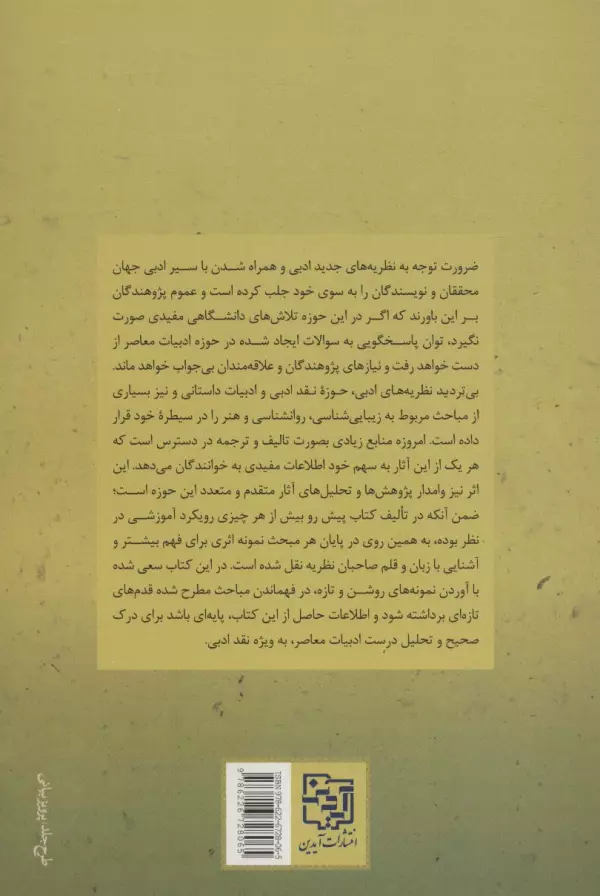 ضرورت توجه به نظریه‌های جدید ادبی و همراه شدن با سیر ادبی جهان
محققان و نویسندگان را به سوی خود جلب کرده است و عموم پژوهندگان
بر این باورند که اگر در این حوزه تلاش‌های دانشگاهی مفیدی صورت
نگیرد، توان پاسخگویی به سوالات ایجاد شده در حوزه ادبیات معاصر از
دست خواهد رفت و نیازهای پژوهندگان و علاقه‌مندان بی‌جواب خواهد ماند.
بی‌تردید نظریه‌های ادبی، حوزهٔ نقد ادبی و ادبیات داستانی و نیز بسیاری
از مباحث مربوط به زیبایی‌شناسی، روانشناسی و هنر را در سیطرهٔ خود قرار
داده است. امروزه منابع زیادی بصورت تالیف و ترجمه در دسترس است که
هر یک از این آثار به سهم خود اطلاعات مفیدی به خوانندگان می‌دهد. این
اثر نیز وامدار پژوهش‌ها و تحلیل‌های آثار متقدم و متعدد این حوزه است؛
ضمن آنکه در تألیف کتاب پیش رو بیش از هر چیزی رویکرد آموزشی در
نظر بوده، به همین روی در پایان هر مبحث نمونه اثری برای فهم بیشتر و
آشنایی با زبان و قلم صاحبان نظریه نقل شده است. در این کتاب سعی شده
با آوردن نمونه‌های روشن و تازه، در فهماندن مباحث مطرح شده قدم‌های
تازه‌ای برداشته شود و اطلاعات حاصل از این کتاب، پایه‌ای باشد برای درک
صحیح و تحلیل درست ادبیات معاصر، به ویژه نقد ادبی.
ISBN 978-622-6728-06-5
9 786226 728065
آیدین
انتشارات آیدین
طرح جلد: پرویز بیانی